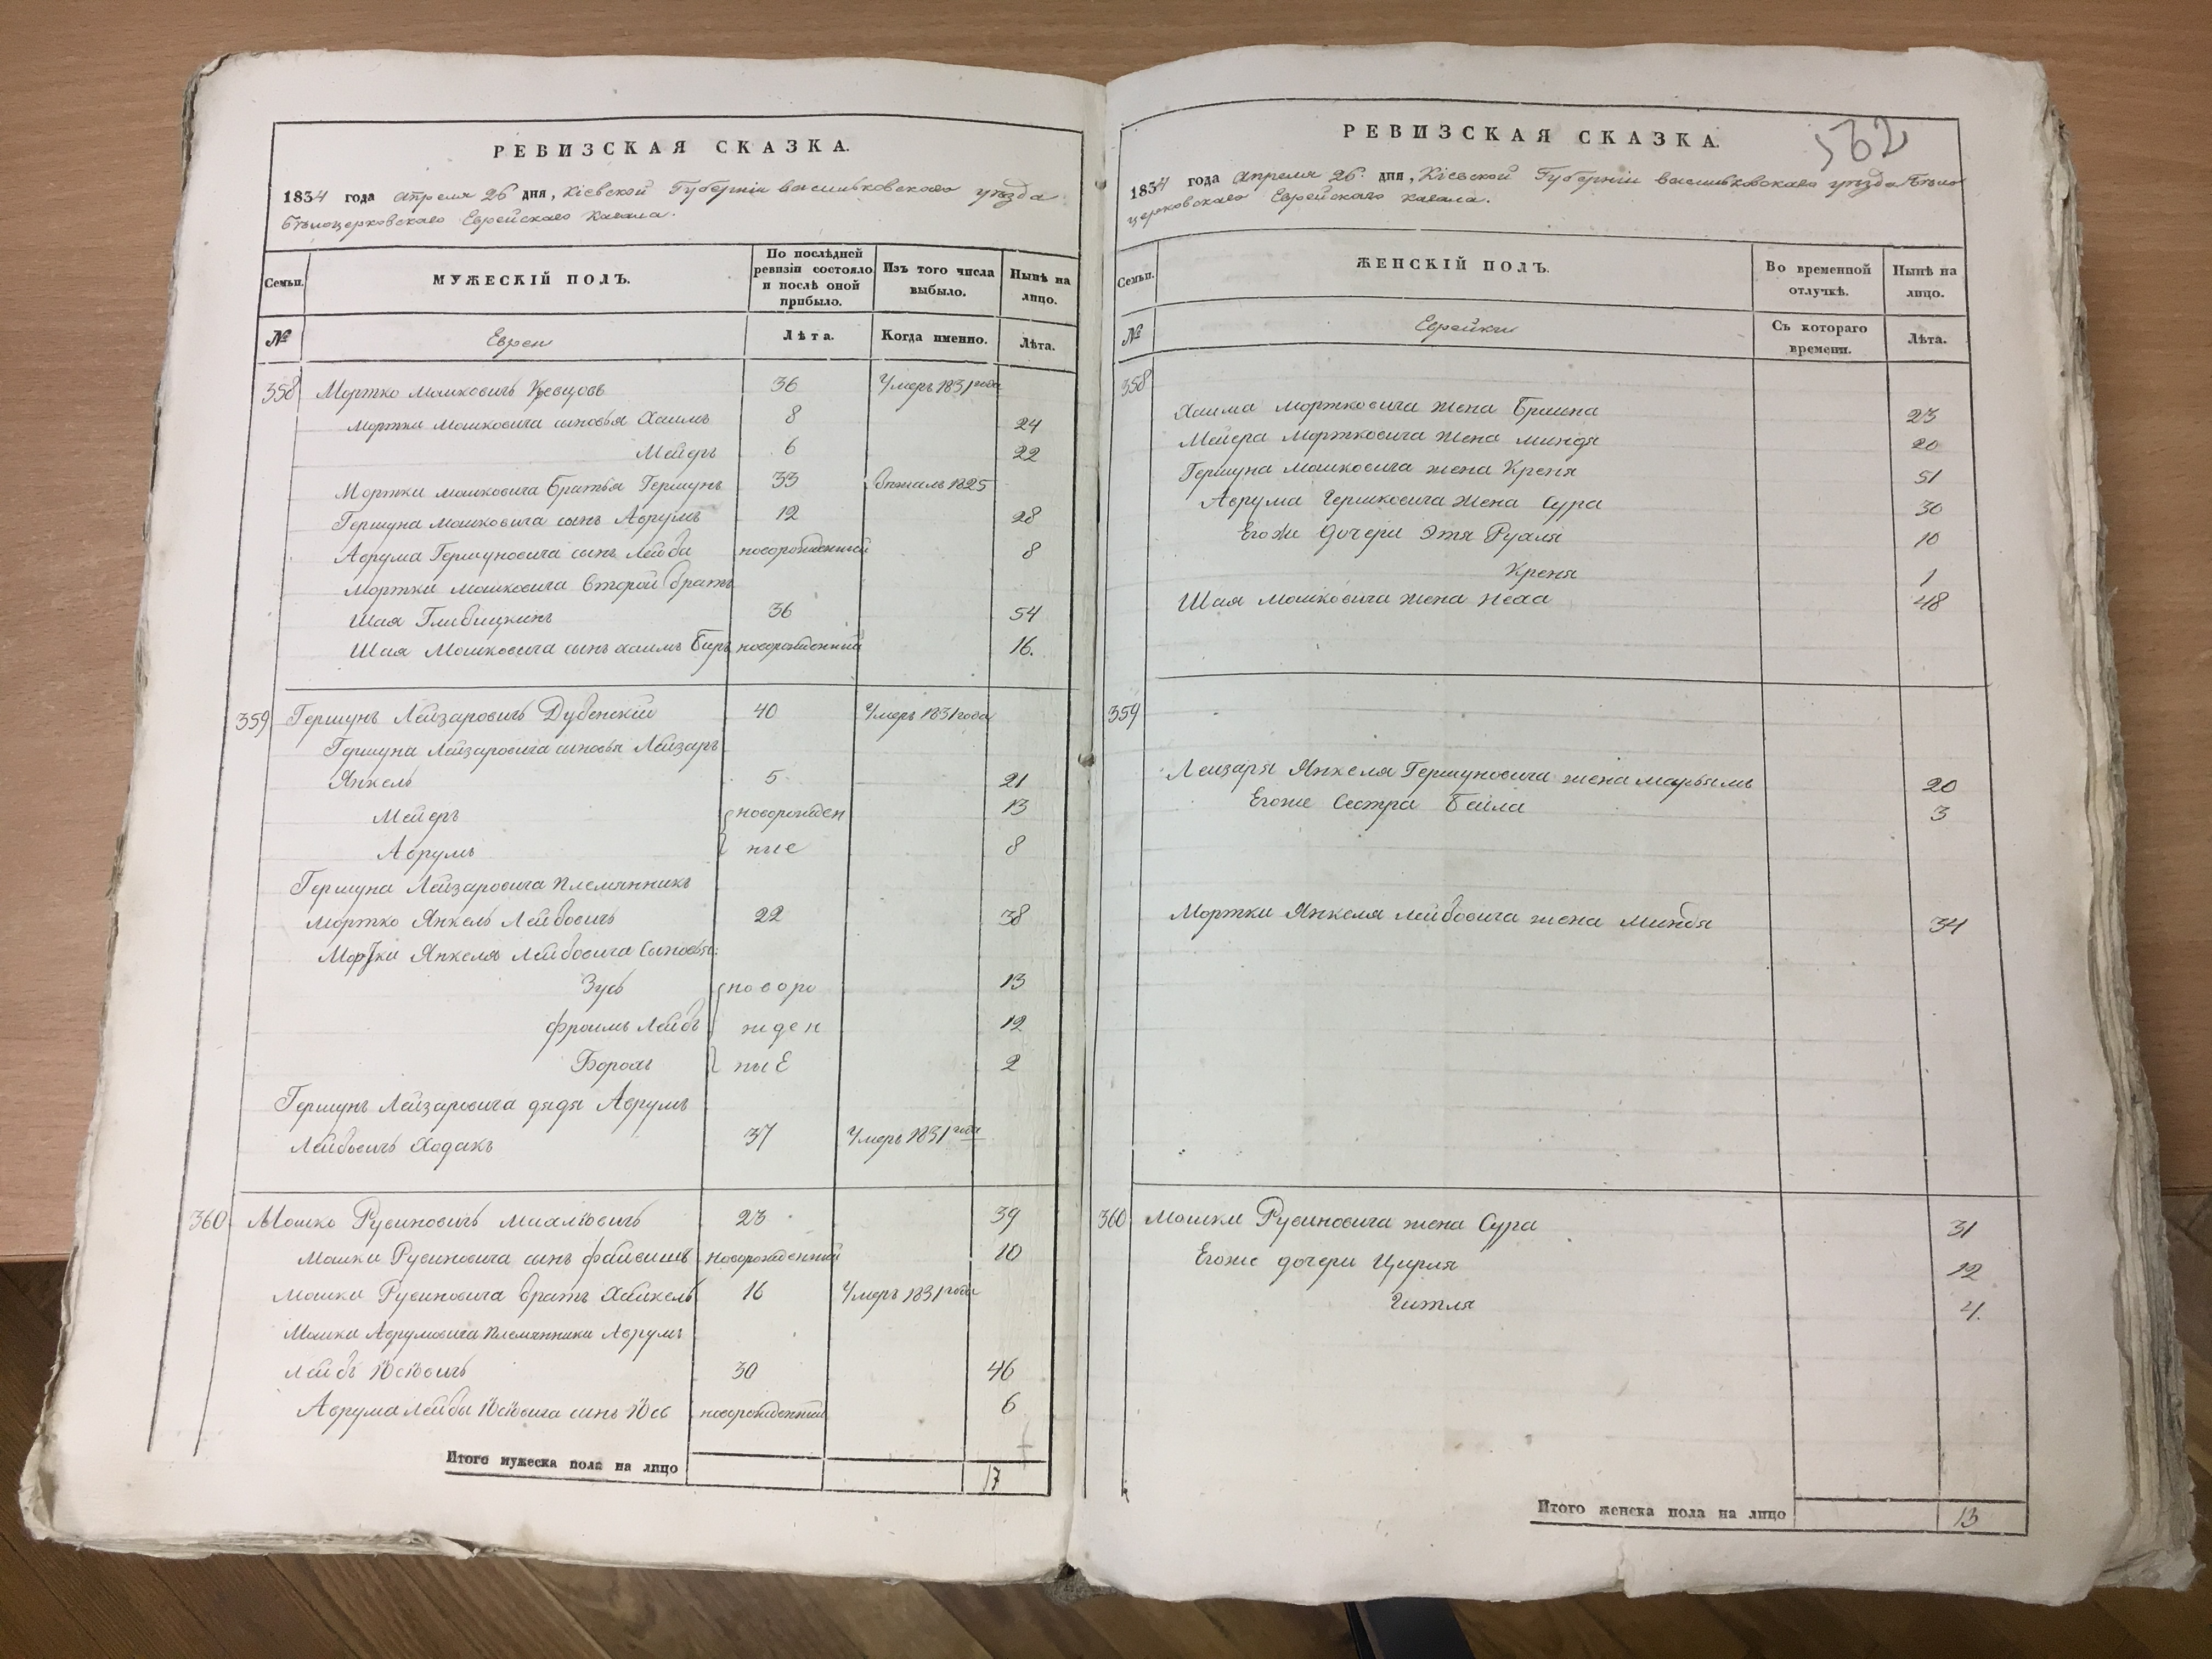 РЕВИЗСКАЯ СКАЗКА.
1834 года Апреля 26 дня, Кіевской Губерніи Васильковскаго уѣзда
Бѣлоцерковскаго Еврейскаго Кагала.
Семьи. МУЖЕСКІЙ ПОЛЪ. По послѣдней ревизіи состояло и послѣ оной прибыло. Изъ того числа выбыло. Нынѣ на лицо.
№ Евреи Лѣта. Когда именно. Лѣта.
358 Мортко Мошковичъ 36 Умеръ 1831 года
Мортки Мошковича сыновья Хаимъ 8 24
Мейеръ 6 22
Мортки Мошковича Братья Гершунъ 33 1825
Гершуна Мошковича сынъ Аврумъ 12 28
Аврума Гершуновича сынъ Лейба новорожденный 8
Мортки Мошковича Второй братъ
Шая 36 54
Шая Мошковича сынъ Хаимъ Беръ новорожденный 16.
359 Гершунъ Лейзаровичъ Дубенскій 40 Умеръ 1831 года
Гершуна Лейзаровича сыновья Лейзаръ
Янкель 5 21
Мейеръ новорожден 13
Аврумъ ные 8
Гершуна Лейзаровича племянникъ
Мортко Янкель Лейбовичъ 22 38
Мортки Янкеля Лейбовича Сыновья:
Зусь новоро 13
Фроимъ Лейбъ жден 12
Борохъ ныЕ 2
Гершунъ Лейзаровича дядя Аврумъ
Лейбовичъ Ходакъ 37 Умеръ 1831 года
360 Мошко Рувиновичъ 23 39
Мошки Рувиновича сынъ Файвишъ новорожденный 10
Мошки Рувиновича братъ Хайкель 16 Умеръ 1831 года
Мошки Аврумовича племянники Аврумъ
Лейбъ Іосіовичъ 30 46
Аврума Лейбы Іосіовича сынъ Іось новорожденный 6
Итого мужеска пола на лицо 17
РЕВИЗСКАЯ СКАЗКА.
562
1834 года Апреля 26: дня, Кіевской Губерніи Васильковскаго уѣзда Бѣло
церковскаго Еврейскаго Кагала.
Семьи. ЖЕНСКІЙ ПОЛЪ. Во временной отлучкѣ. Нынѣ на лицо.
№ Еврейки Съ котораго времени. Лѣта.
358
Хаима Мортковича жена Браина 23
Мейера Мортковича жена Миндя 20
Гершуна Мошковича жена Креня 51
Аврума Гершковича жена Сура 30
Егожъ дочери Этя Рухля 10
Креня 1
Шая Мошковича жена Неха 48
359
Лейзаря Янкеля Гершуновича жена Марьямъ 20
Егоже Сестра Бейла 3
Мортки Янкеля Лейбовича жена Миндя 34
360 Мошки Рувиновича жена Сура 31
Егоже дочери Цирля 12
Гитля 4.
Итого женска пола на лицо 13